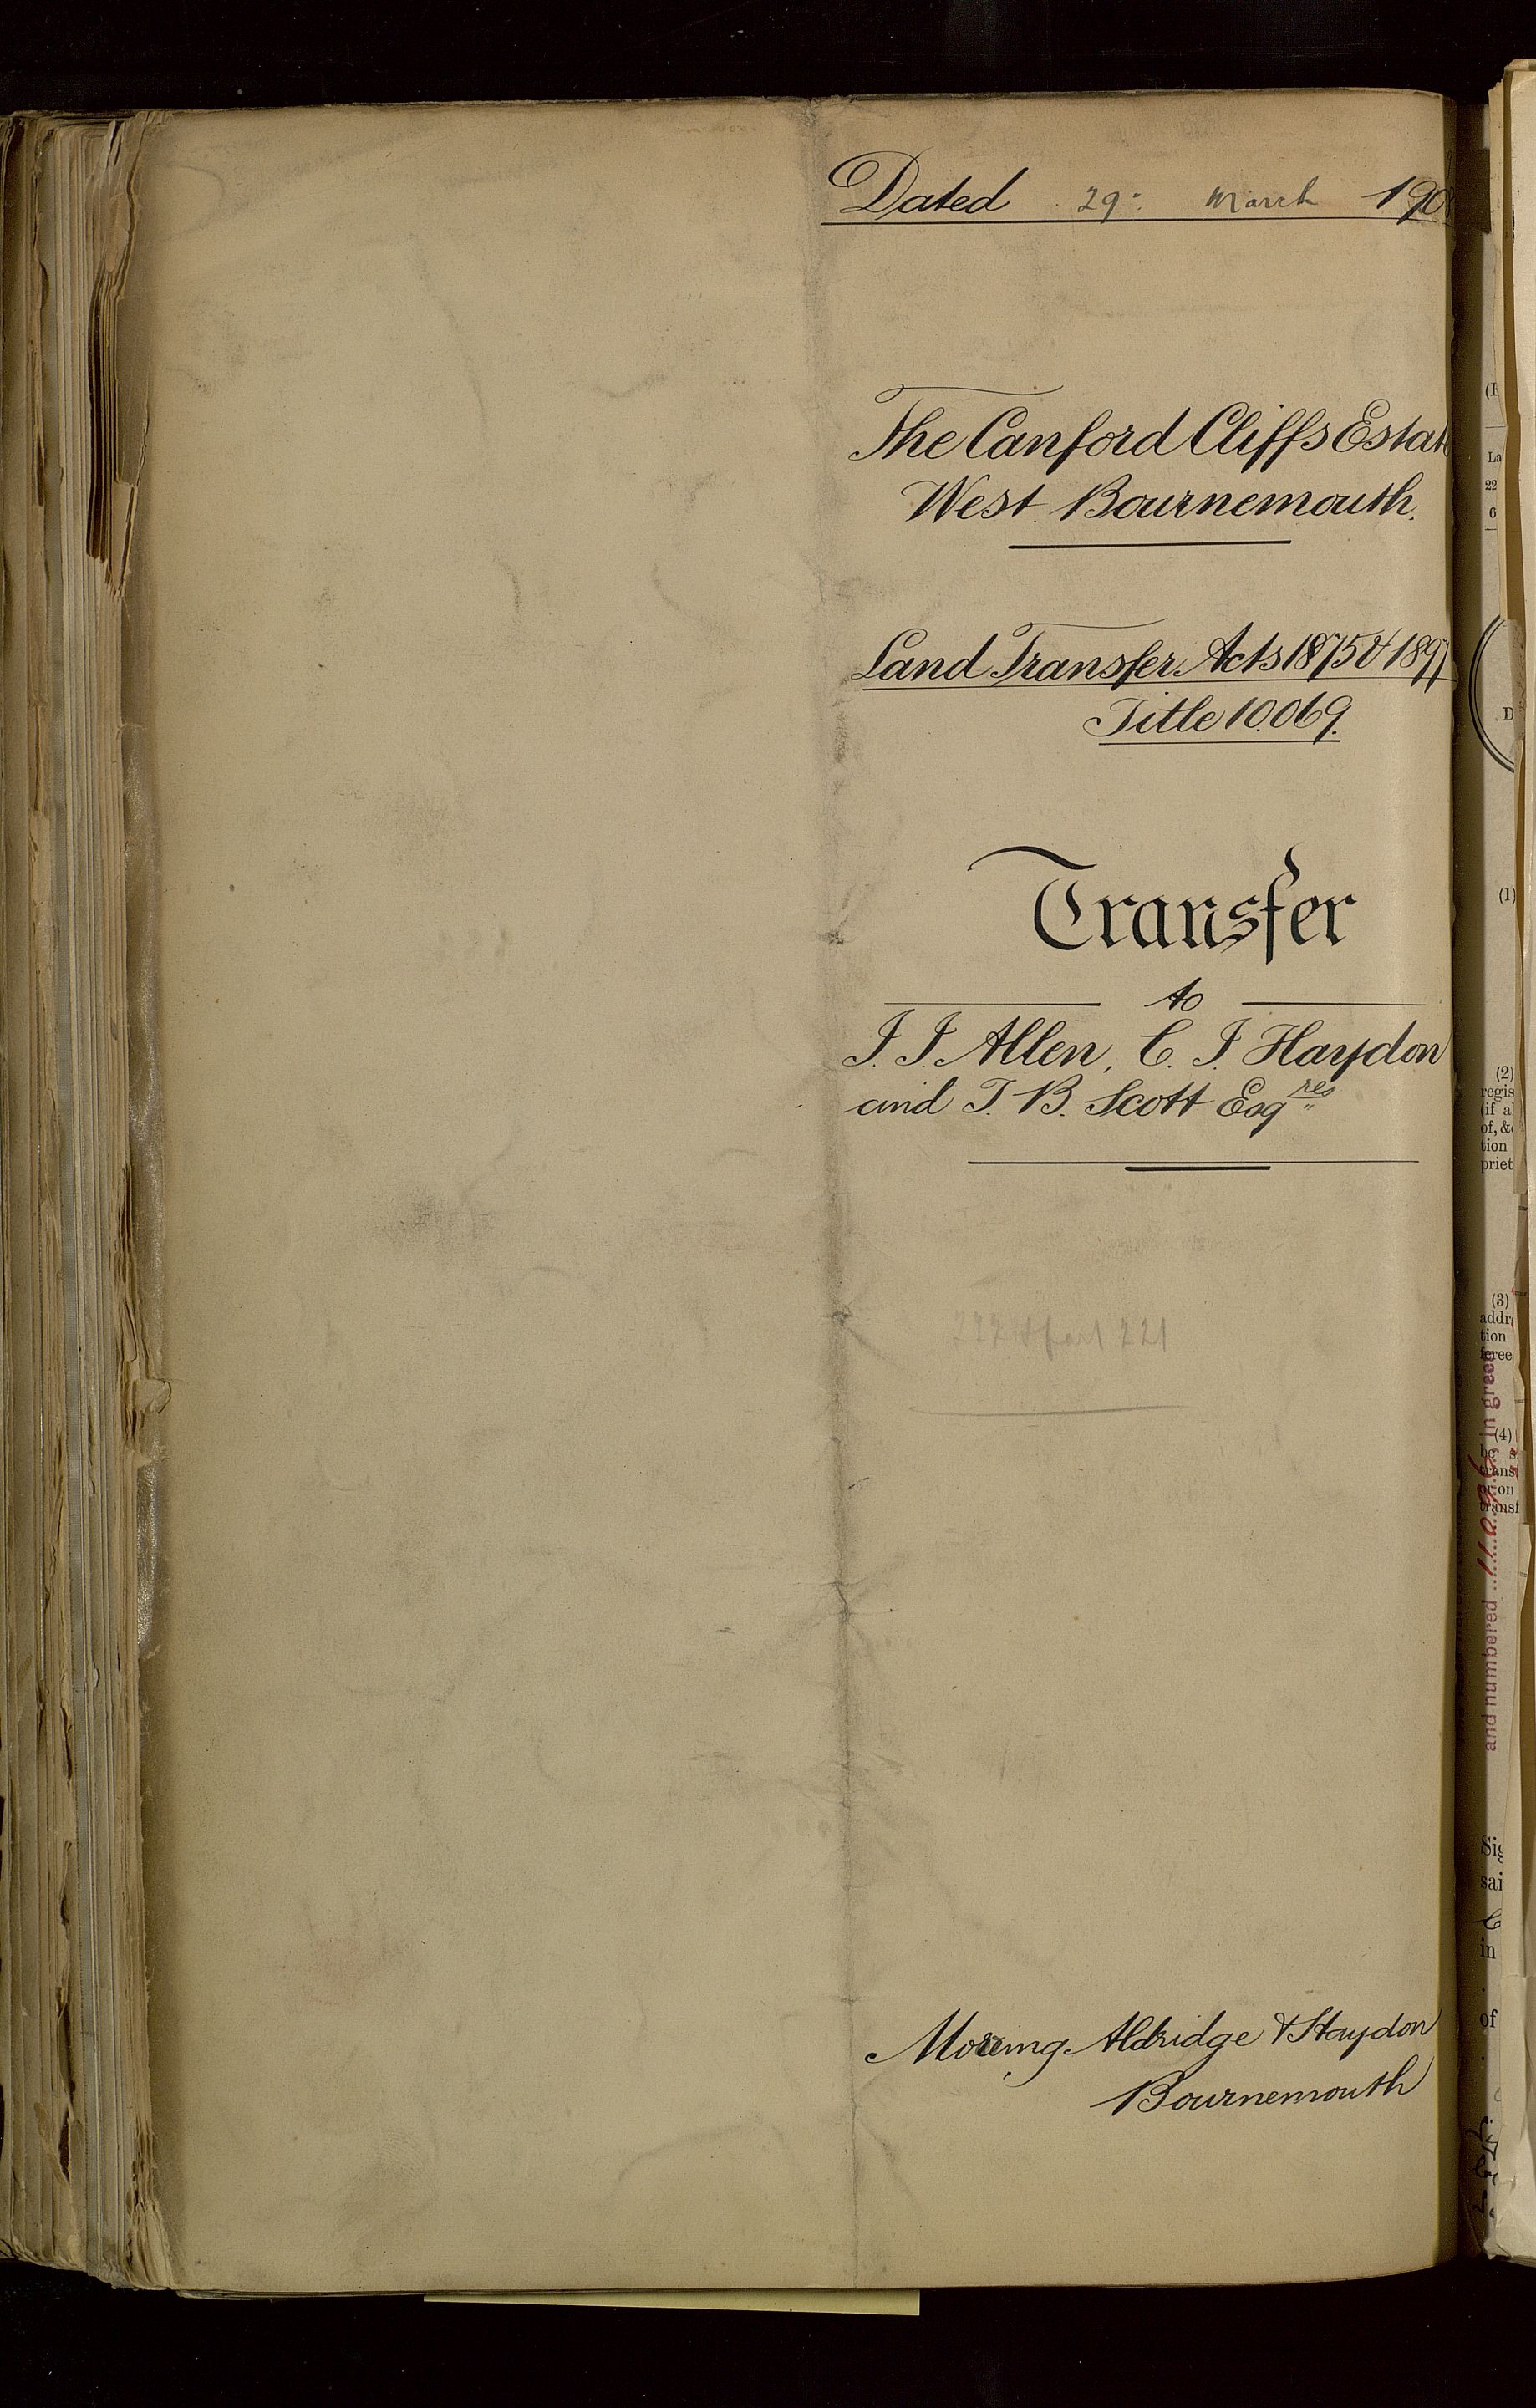 Dated 29th March 190
The Canford Cliffs Estate
West Bournemouth.
Land Transfer Acts 1875 & 1897
Title 10.069.
Transfer
to
J. J. Allen, C. J. Haydon
and T. B. Scott Esqres
Mooring Aldridge & Haydon
Bournemouth
(1)
(2)
regis
(if a
of, &c
tion
priet
(3)
addr
tion
feree
(4)
be s
trans
or on
transf
and numbered 11096, in green
Sig
sai
in
of